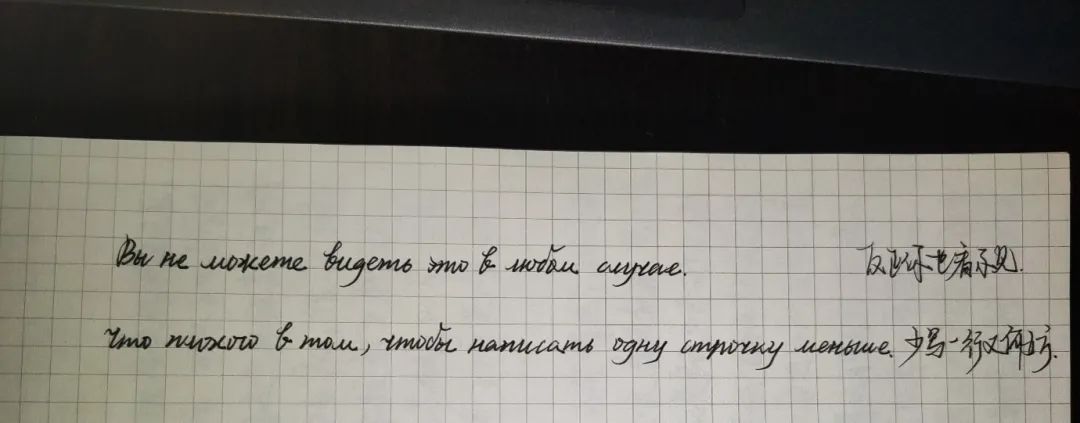 Вы не можете видеть это в любом случае. 反正你也看不见.
Что плохого в том, чтобы написать одну строчку меньше. 少写一行又何妨.